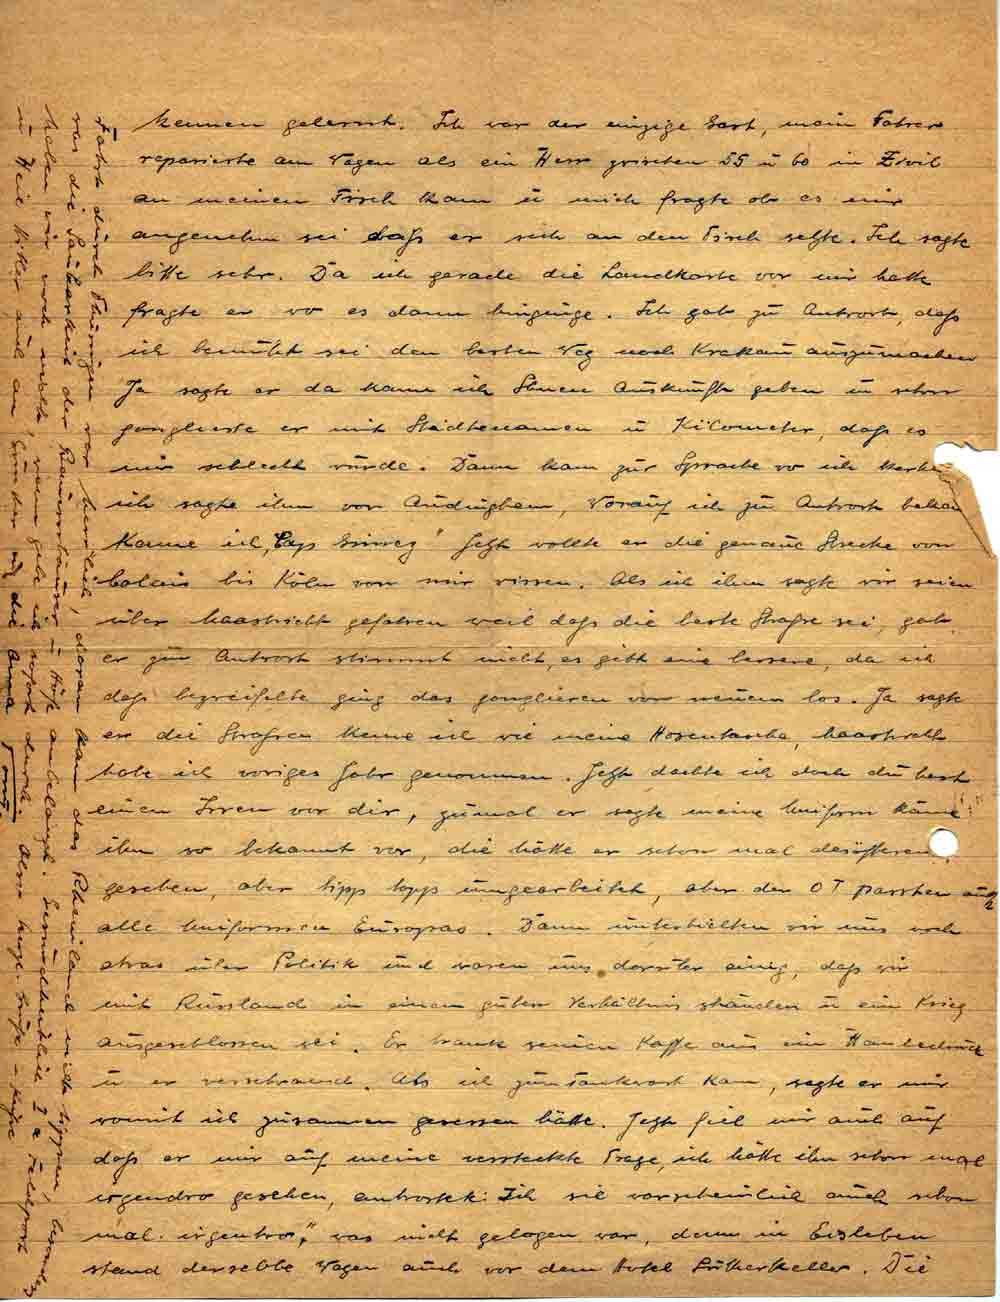 kennen gelernt. Ich war der einzige Gast, mein Fahrer
reparierte am Wagen als ein Herr zwischen 55 u 60 in Zivil
an meinen Tisch kam u mich fragte ob es mir
angenehm sei daß er sich an den Tisch setzte. Ich sagte
bitte sehr. Da ich gerade die Landkarte vor mir hatte
fragte er wo es denn hinginge. Ich gab zu Antwort, daß
ich bemüht sei den besten Weg nach Krakau auszumachen
Ja sagte er da kann ich Ihnen Auskunft geben u schon
jonglierte er mit Städtenamen u Kilometer, daß es
mir schlecht würde. Dann kam zur Sprache wo ich
ich sagte ihm von Audinghem, worauf ich zu Antwort bekam
kenne ich, "Cap Grisnez" Jetzt wollte er die genaue Strecke von
Calais bis Köln von mir wissen. Als ich ihm sagte wir seien
über Maastricht gefahren weil daß die beste Straße sei, gab
er zur Antwort stimmt nicht, es gibt eine bessere, da ich
daß bezweifelte ging das jonglieren von neuem los. Ja sagte
er die Straßen kenne ich wie meine Hosentasche, Maastricht
habe ich voriges Jahr genommen. Jetzt dachte ich doch du hast
einen Irren vor dir, zumal er sagte meine Uniform käme
ihm so bekannt vor, die hätte er schon mal desöfteren
gesehen, aber tipp topp umgearbeitet, aber der OT passten auch
alle Uniformen Europas. Dann unterhielten wir uns noch
etwas über Politik und waren uns darüber einig, daß wir
mit Russland in einen guten Verhältnis ständen u ein Krieg
ausgeschlossen sei. Er trank seinen Kaffe aus ein Händedruck
u er verschwand. Als ich zum Tankwart kam, sagte er mir
womit ich zusammen gesessen hätte. Jetzt fiel mir auch auf
daß er mir auf meine versteckte Frage, ich hätte ihn schon mal
irgendwo gesehen, antwortet: Ich sie warscheinlich auch schon
mal irgentwo", was nicht gelogen war, denn in Eisleben
stand derselbe Wagen auch vor dem Hotel Lutherkeller. Die
Fahrt durch Thüringen war herrlich, daran kam das Rheinland nicht tippen, besonders
was die Sauberkeit der Bauernhäuser u Höfe anbelangt.
haben wir noch nicht, wenn gebe ich sofort durch. Also
u Heil Hitler auch an Günther u die Anna